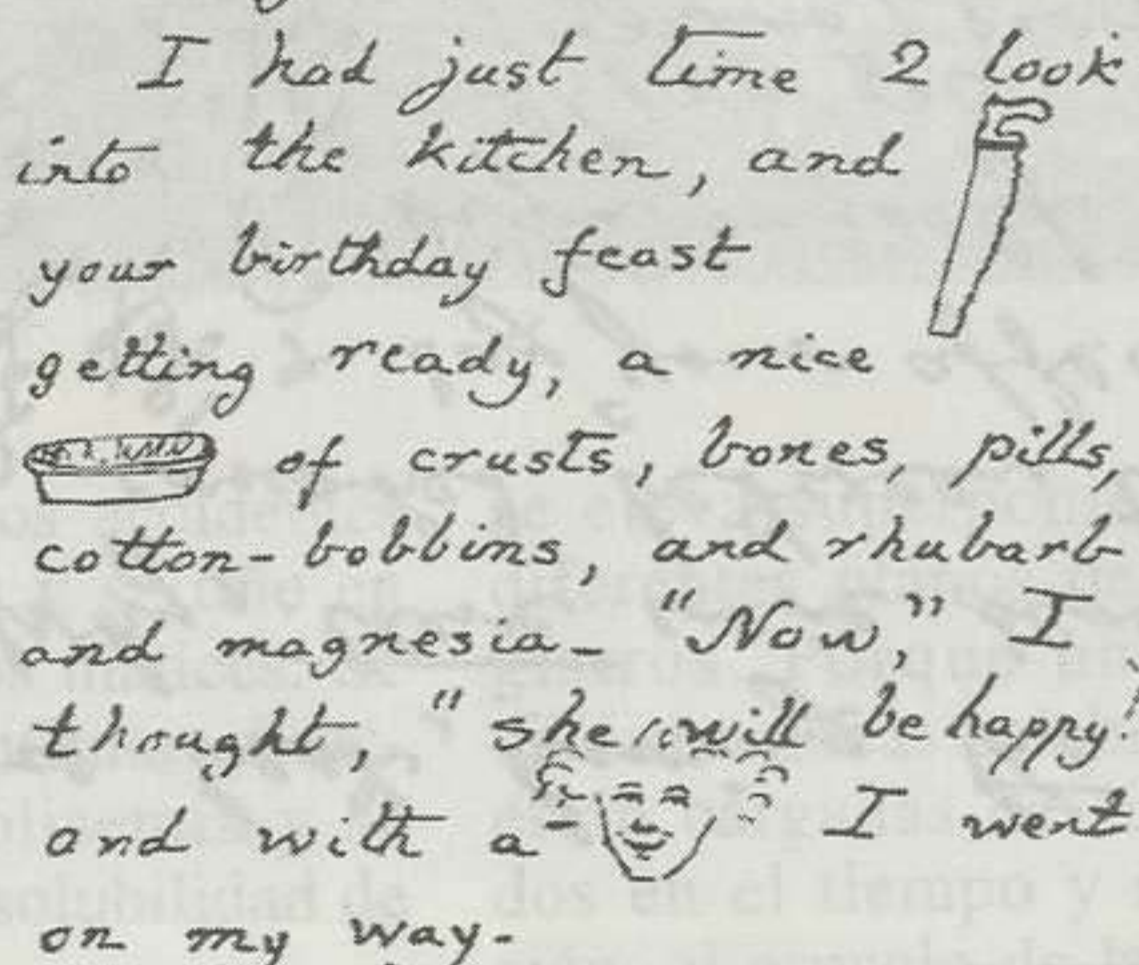 I had just time 2 look
into the kitchen, and
your birthday feast
getting ready, a nice
of crusts, bones, pills,
cotton-bobbins, and rhubarb
and magnesia- "Now," I
thought, "she will be happy!
and with a I went
on my way.